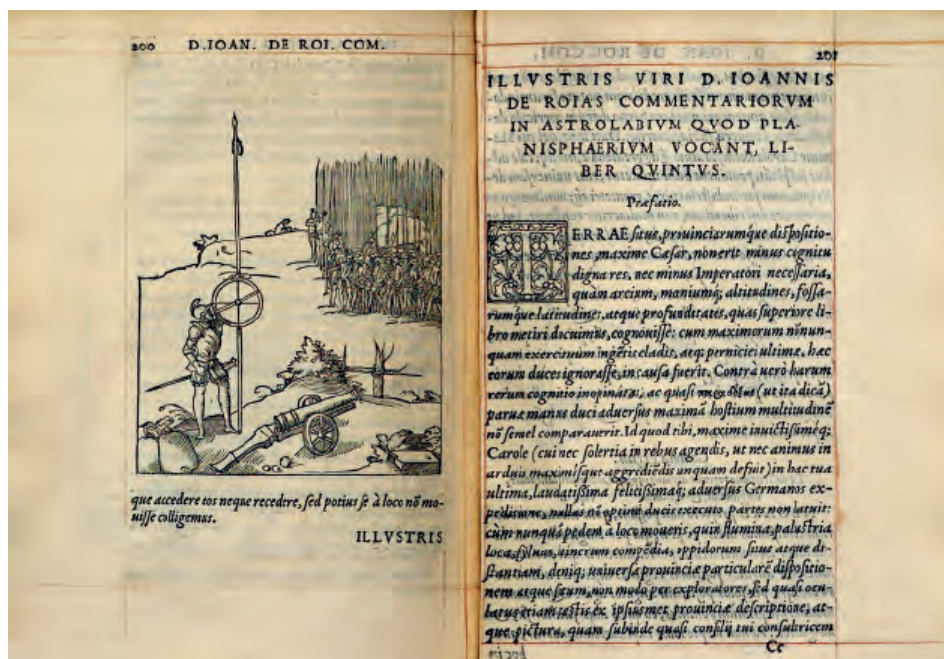 200 D. IOAN. DE ROI. COM.
que accedere eos neque recedere, sed potius se à loco nõ mo-
uisse colligemus.
ILLVSTRIS
201
ILLVSTRIS VIRI D. IOANNIS
DE ROIAS COMMENTARIORVM
IN ASTROLABIVM QVOD PLA-
NISPHAERIVM VOCANT, LI-
BER QVINTVS.
Præfatio.
TERRAE situs, prouinciarumque dispositio-
nes, maxime Cæsar, non erit minus cognitu
digna res, nec minus Imperatori necessaria,
quàm arcium, mœniumq; altitudines, fossa-
rumque latitudines, atque profunditates, quas superiore li-
bro metiri docuimus, cognouisse: cum maximorum nõnun-
quam exercituum ingẽtis cladis, atq; perniciei ultimæ, hæc
eorum duces ignorasse, in causa fuerit. Contrà uerò harum
rerum cognitio inopinatã, ac quasi (ut ita dicã)
paruæ manus duci aduersus maximã hostium multitudinẽ
nõ semel comparauerit. Id quod tibi, maxime inuictissimeq;
Carole (cui nec solertia in rebus agendis, ut nec animus in
arduis maximisque aggrediẽdis unquam defuit) in hac tua
ultima, laudatissima felicissimaq; aduersus Germanos ex-
peditione, nullas nõ optimi ducis executo partes non latuit:
cùm nunquã pedem à loco moueris, quin flumina, palustria
loca, syluas, itinerum compẽdia, oppidorum situs atque di-
stantiam, deniq; uniuersæ prouinciæ particularẽ dispositio-
nem atque situm, non modo per exploratores, sed quasi ocu-
latus etiam testis ex ipsiusmet prouinciæ descriptione, at-
que pictura, quam subinde quasi consilij tui consultricem
Cc